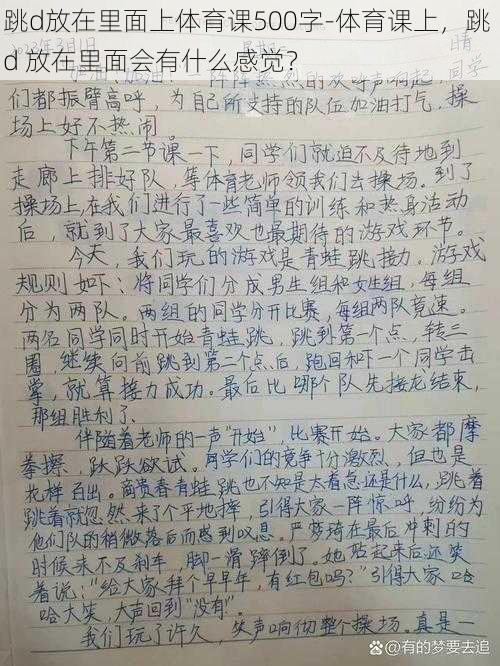 跳d放在里面上体育课500字-体育课上，跳
d 放在里面会有什么感觉？
3月1日
晴
阵阵热烈的欢呼声响起，同学
们都振臂高呼，为自己所支持的队伍加油打气，操
场上好不热闹。
下午第二节课一下，同学们就迫不及待地到
走廊上排好队，等体育老师领我们去操场。到了
操场上，在我们进行了一些简单的训练和热身活动
后，就到了大家最喜欢也最期待的游戏环节。
今天，我们玩的游戏是青蛙跳接力。游戏
规则如下：将同学们分成男生组和女生组，每组
分为两队。两组的同学分开比赛，每组两队竞速。
两名同学同时开始青蛙跳，跳到第一个点，转三
圈，继续向前跳到第二个点后，跑回和下一个同学击
掌，就算接力成功。最后比哪个队先接龙结束，
那组胜利了。
伴随着老师的一声"开始"，比赛开始。大家都摩
拳擦，跃跃欲试。同学们的竞争十分激烈，但也是
花样百出。商贵春青蛙跳也不知是太着急还是什么，跳着
跳着就忽然来了个平地摔，引得大家一阵惊呼，纷纷为
他们队的稍微落后而感到叹息。严梦琦在最后冲刺的
时候来不及刹车，脚一滑蹿倒了。她站起来后还笑
着说："给大家拜个早早年，有红包吗？"引得大家哈
哈大笑，大声回到"没有"。
我们玩了许久，笑声响彻整个操场。真是一
@有的梦要去追